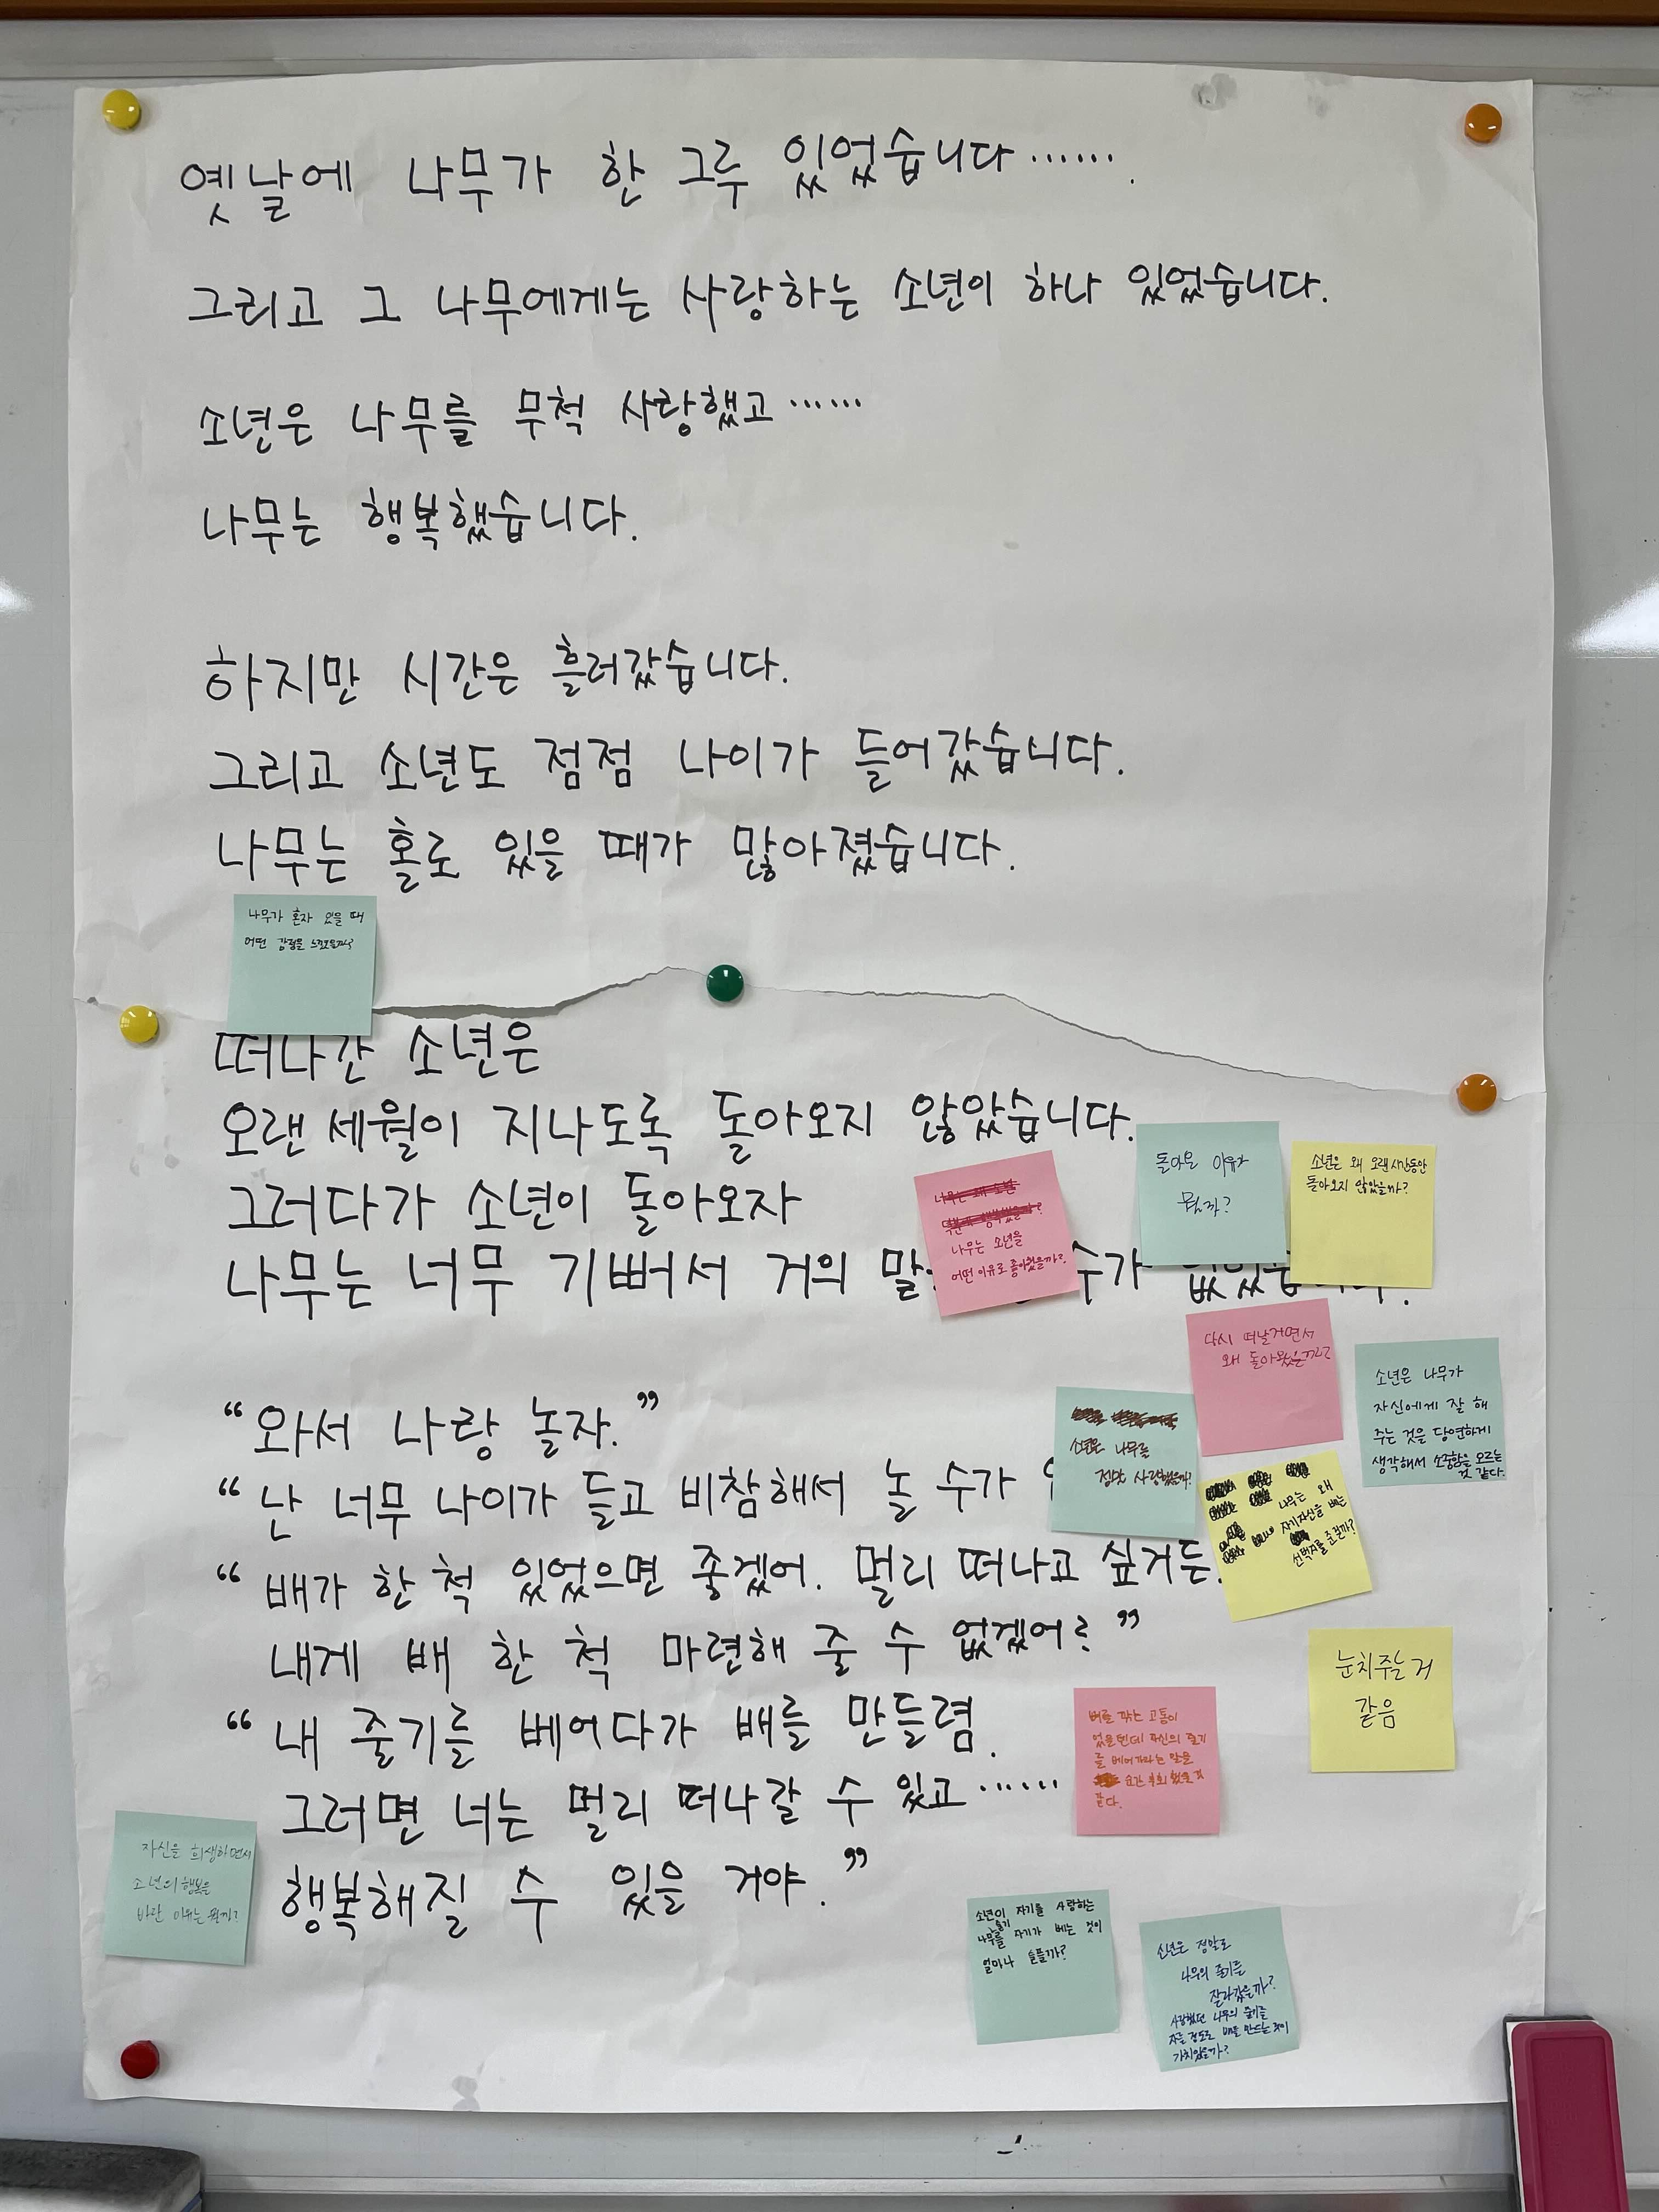 옛날에 나무가 한 그루 있었습니다…….
그리고 그 나무에게는 사랑하는 소년이 하나 있었습니다.
소년은 나무를 무척 사랑했고……
나무는 행복했습니다.
하지만 시간은 흘러갔습니다.
그리고 소년도 점점 나이가 들어갔습니다.
나무는 홀로 있을 때가 많아졌습니다.
나무가 혼자 있을 때
어떤 감정을 느꼈을까?
떠나간 소년은
오랜 세월이 지나도록 돌아오지 않았습니다.
그러다가 소년이 돌아오자
나무는 너무 기뻐서 거의 말 수가 없었습니다.
나무는 소년을
어떤 이유로 좋아했을까?
돌아온 이유가
뭘까?
소년은 왜 오랜시간동안
돌아오지 않았을까?
다시 떠날거면서
왜 돌아왔을까?
소년은 나무가
자신에게 잘 해
주는 것을 당연하게
생각해서 소중함을 모르는
것 같다.
"와서 나랑 놀자."
소년은 나무를
정말 사랑했을까?
"난 너무 나이가 들고 비참해서 놀 수가
나무는 왜
자기자신을 베는
선택지를 준걸까?
"배가 한 척 있었으면 좋겠어. 멀리 떠나고 싶거든.
내게 배 한 척 마련해 줄 수 없겠어?"
눈치주는 거
같음
"내 줄기를 베어다가 배를 만들렴.
그러면 너는 멀리 떠나갈 수 있고……
행복해질 수 있을 거야."
고통이
있을텐데 자신의 줄기
를 베어가라는 말을
순간 후회했을 것
같다.
자신을 희생하면서
소년의 행복을
바란 이유는 뭘까?
소년이 자기를 사랑하는
줄기
나무를 자기가 베는 것이
얼마나 슬플까?
소년은 정말로
나무의 줄기를
잘라갔을까?
사랑했던 나무의 줄기를
자를 정도로 배를 만드는 것이
가치있을까?